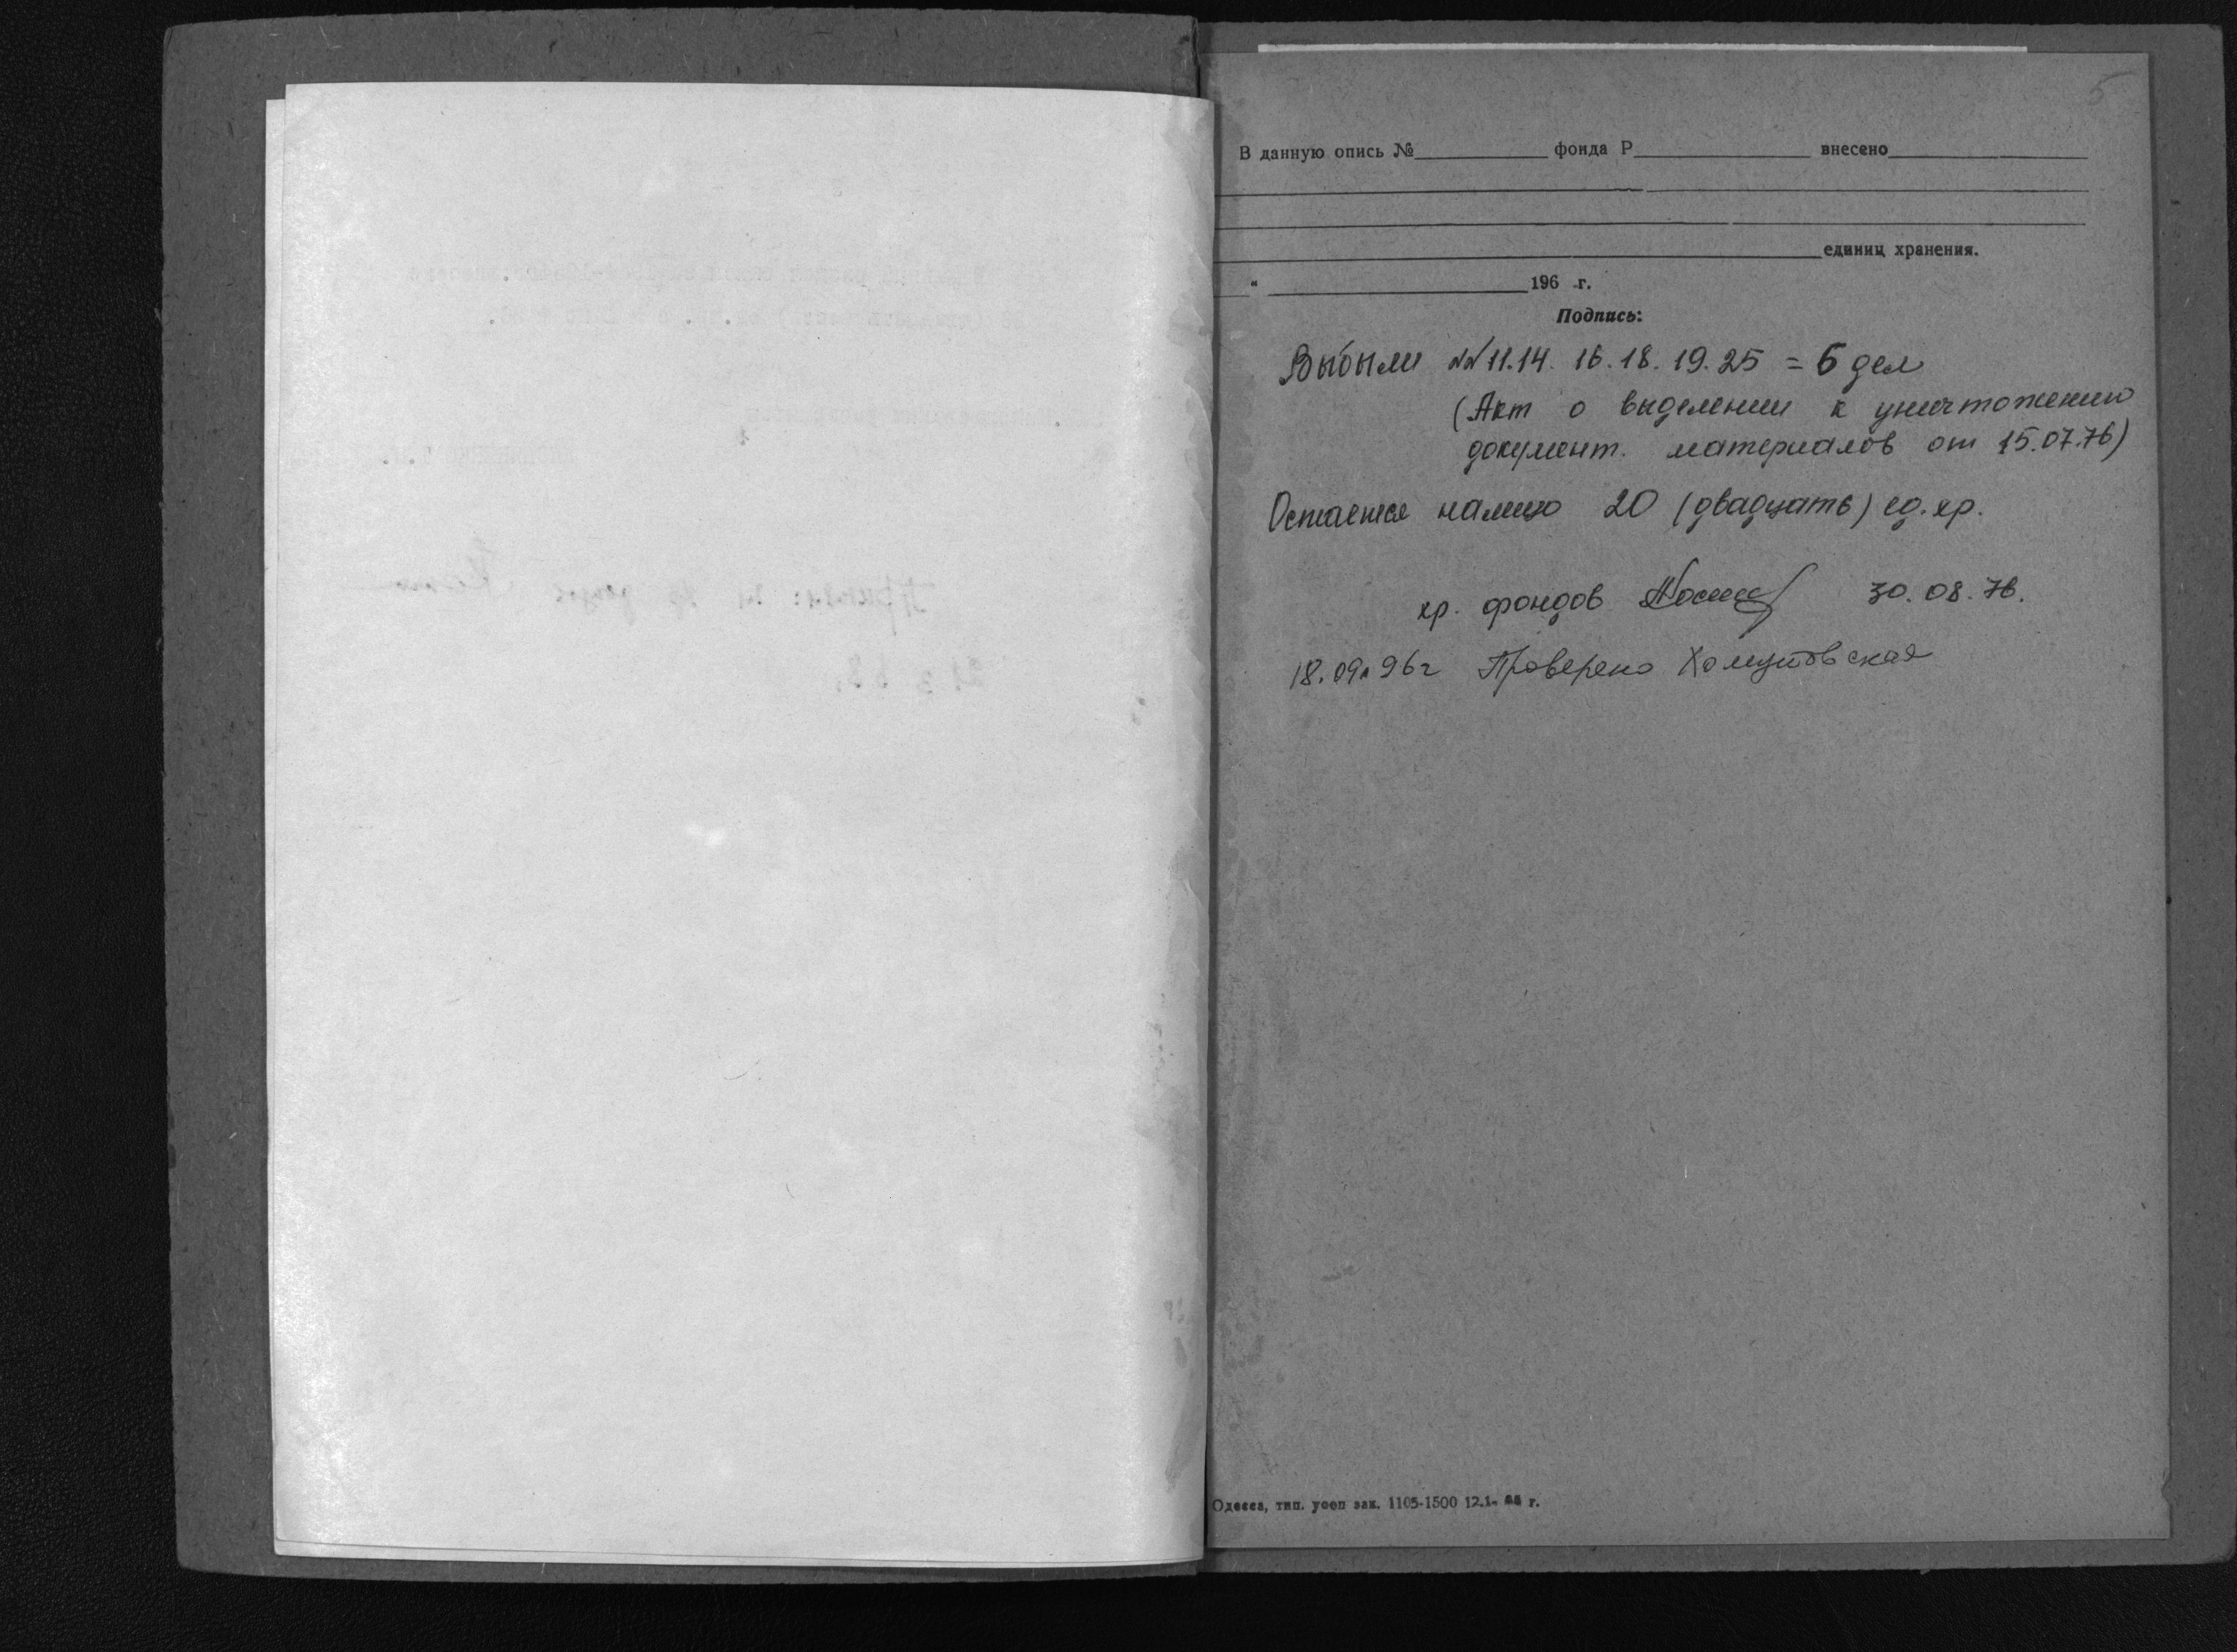 5
В данную опись №__________ фонда Р__________ внесено__________
единиц хранения.
" __________ 196 г.
Подпись:
Выбыли №№ 11.14. 16. 18. 19. 25 = 6 дел
(Акт о выделении к уничтожению
документ. материалов от 15.07.76)
Остается налицо 20 (двадцать) ед. хр.
хр. фондов 30. 08. 76.
18.09.96г Проверено Хомутовская
Одесса, тип. зак. 1105-1500 12.1- г.